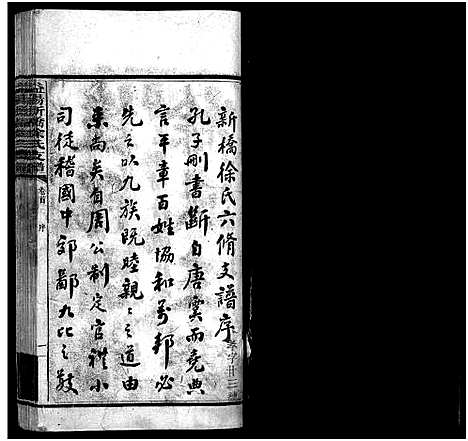 新橋徐氏六脩支譜序
孔子刪書斷自唐虞而堯典
言平章百姓協和萬邦必
先之以九族既睦親親之道由
來尚矣自周公制定官禮小
司徒稽國中郊鄙九比之數
新橋徐氏支譜
卷首
序
一